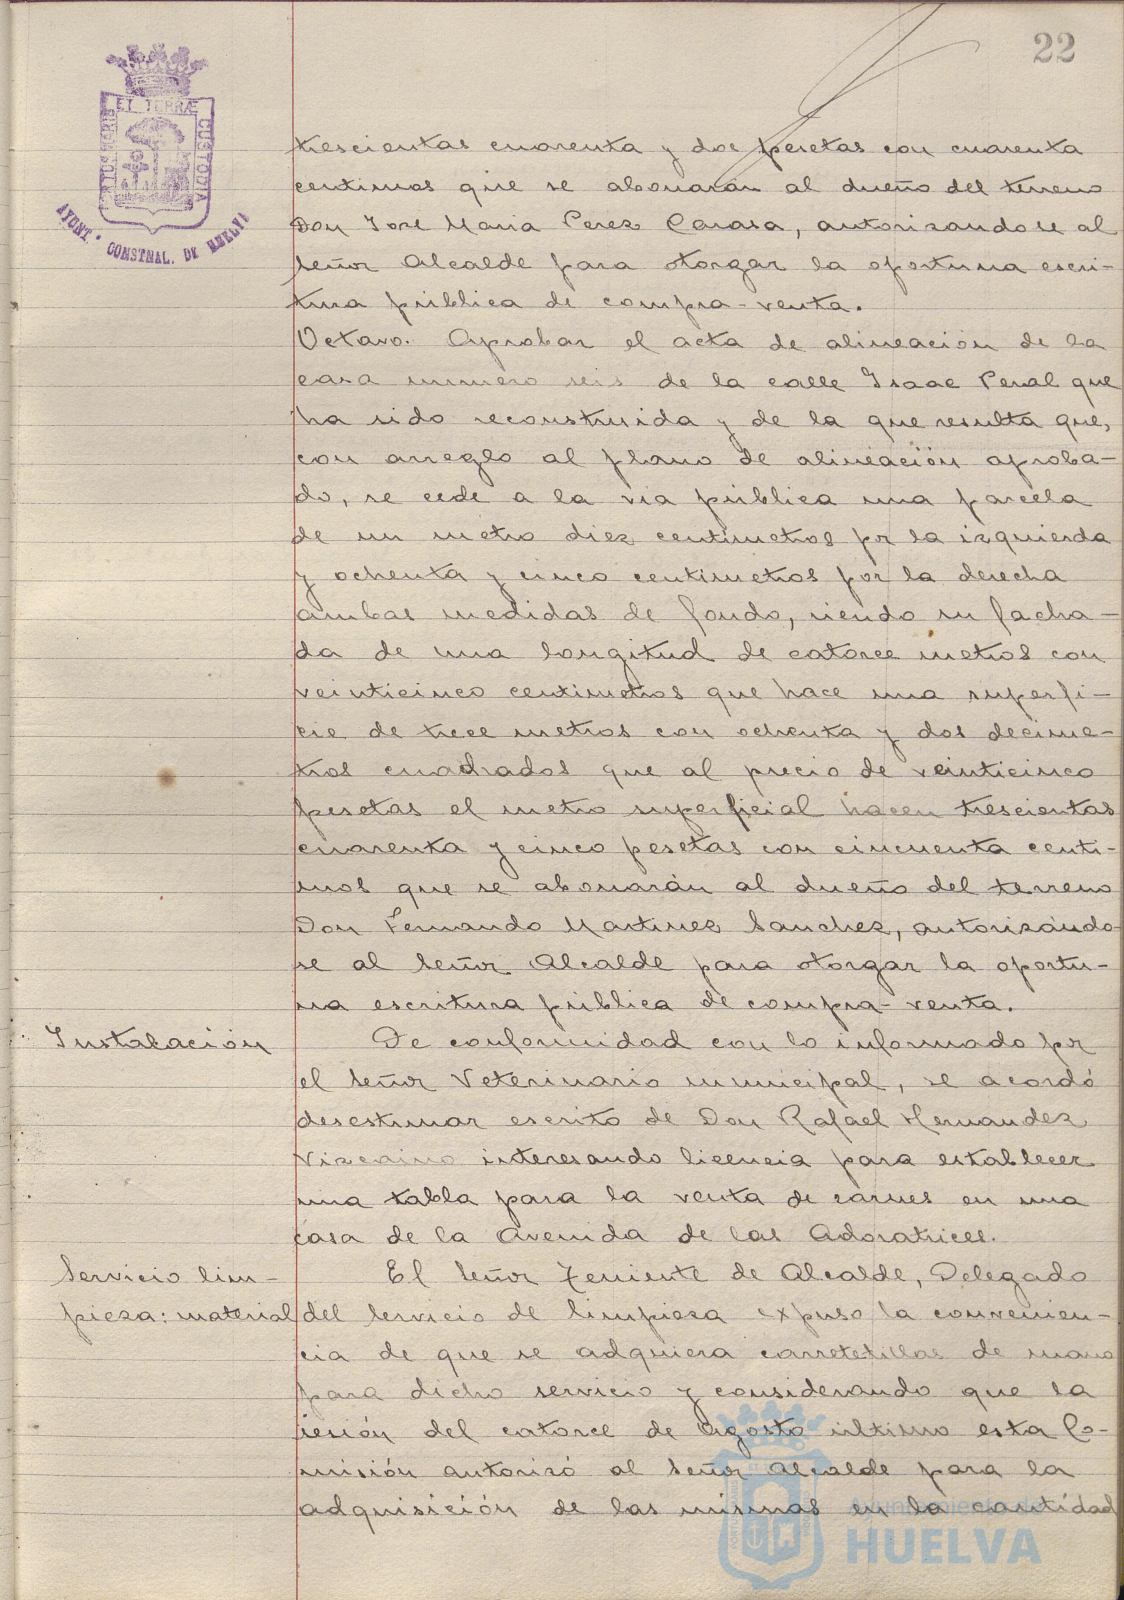 22
PORTUS MARIS ET TERRÆ CUSTODIA
AYUNT. CONSTNAL. DE HUELVA
trescientas cuarenta y dos pesetas con cuarenta
centimos que se abonarán al dueño del terreno
Don José Maria Perez Carasa, autorizandose al
señor Alcalde para otorgar la oportuna escri-
tura pública de compra-venta.
Octavo. Aprobar el acta de alineación de la
casa numero seis de la calle Isaac Peral que
ha sido reconstruida y de la que resulta que,
con arreglo al plano de alineación aproba-
do, se cede a la via pública una parcela
de un metro diez centimetros por la izquierda
y ochenta y cinco centimetros por la derecha
ambas medidas de fondo, siendo su facha-
da de una longitud de catorce metros con
veinticinco centimetros que hace una superfi-
cie de trece metros con ochenta y dos decime-
tros cuadrados que al precio de veinticinco
pesetas el metro superficial hacen trescientas
cuarenta y cinco pesetas con cincuenta centi-
mos que se abonarán al dueño del terreno
Don Fernando Martinez Sanchez, autorizándo-
se al Señor Alcalde para otorgar la oportu-
na escritura pública de compra-venta.
Instalación
De conformidad con lo informado por
el Señor Veterinario municipal, se acordó
desestimar escrito de Don Rafael Hernandez
Vizcaino interesando licencia para establecer
una tabla para la venta de carnes en una
casa de la Avenida de las Adoratrices.
Servicio lim-
pieza: material
El Señor Teniente de Alcalde, Delegado
del servicio de limpieza expuso la convenien-
cia de que se adquiera carretetillas de mano
para dicho servicio y considerando que la
sesión del catorce de Agosto ultimo esta Co-
misión autorizó al Señor Alcalde para la
adquisición de las mismas en la cantidad
Ayuntamiento de
HUELVA